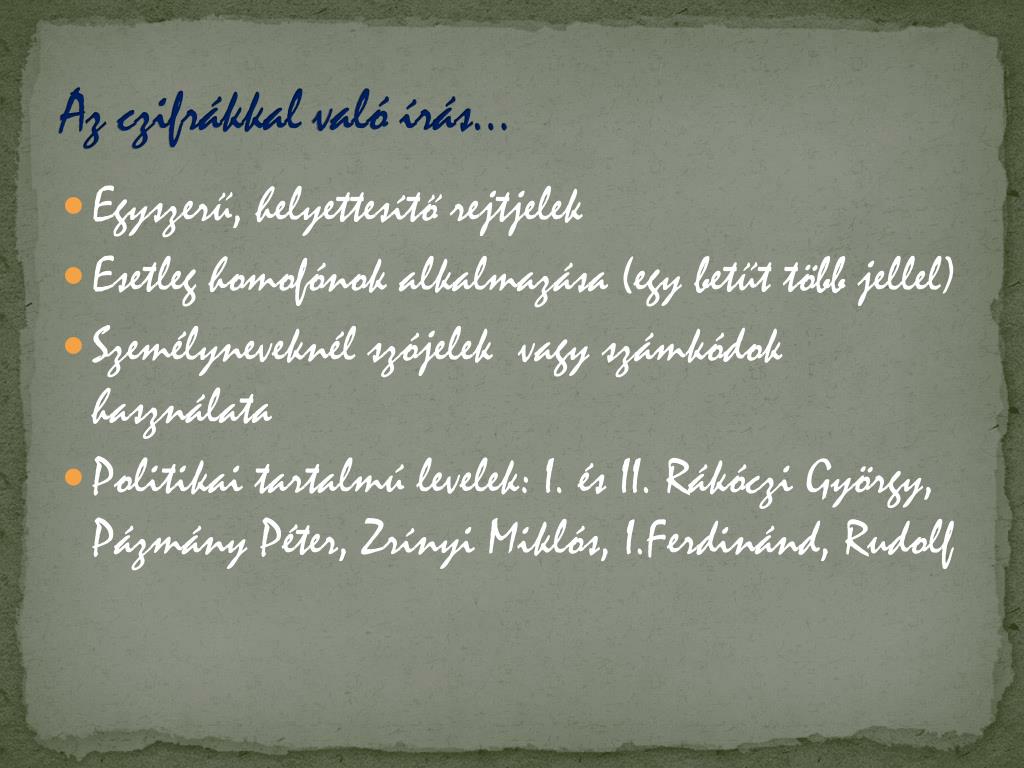 Az czifrákkal való írás...
Egyszerű, helyettesítő rejtjelek
Esetleg homofónok alkalmazása (egy betűt több jellel)
Személyneveknél szójelek vagy számkódok
használata
Politikai tartalmú levelek: I. és II. Rákóczi György,
Pázmány Péter, Zrínyi Miklós, I.Ferdinánd, Rudolf